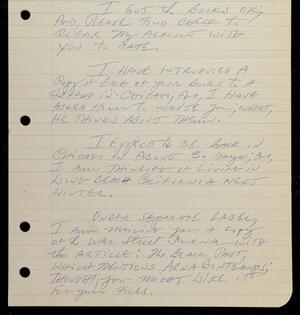 I GOT THE BOOKS OK;
AND, PLEASE FIND CHECK TO
CLEAR MY ACCOUNT WITH
YOU TO DATE.
I HAVE INTRODUCED A
COPY OF EACH OF YOUR BOOKS TO A
FRIEND IN CHICAGO; AND, I HAVE
ASKED HIM TO WRITE YOU; WHAT,
HE THINKS ABOUT THEM.
I EXPECT TO BE BACK IN
CHICAGO IN ABOUT 30 DAYS; BUT,
I AM THINKING OF LIVING IN
LONG BEACH CALIFORNIA NEXT
WINTER.
UNDER SEPARATE LABEL,
I AM MAILING YOU A COPY
OF THE WALL STREET JOURNAL WITH
THE ARTICLE: THE BLACK PAST,
WHICH MENTIONS ARNA BONTEMPS;
THOUGHT, YOU MIGHT LIKE IT
FOR YOUR FILES.